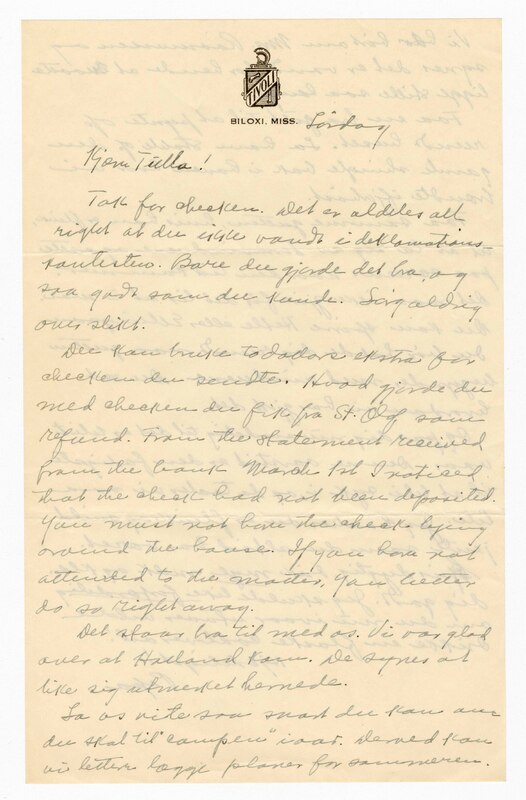 TIVOLI
BILOXI, MISS. Lördag
Kjære Tulla!
Tak for checken. Det er aldeles all
right at du ikke vandt i deklamations-
kontesten. Bare du gjorde det bra, og
saa godt som du kunde. Sörg aldrig
over slikt.
Du kan bruke to dollars ekstra for
checken du sendte. Hvad gjorde du
med checken du fik fra St. Olaf som
refund. From the statement received
from the bank March 1st I noticed
that the check had not been deposited.
You must not have the check lying
around the house. If you have not
attended to the matter, you better
do so right away.
Det staar bra til med os. Vi var glad
over at Halland kom. De synes at
like sig utmerket hernede.
La os vite saa snart du kan om
du skal til "campen" i aar. Derved kan
vi lettere lægge planer for sommeren.